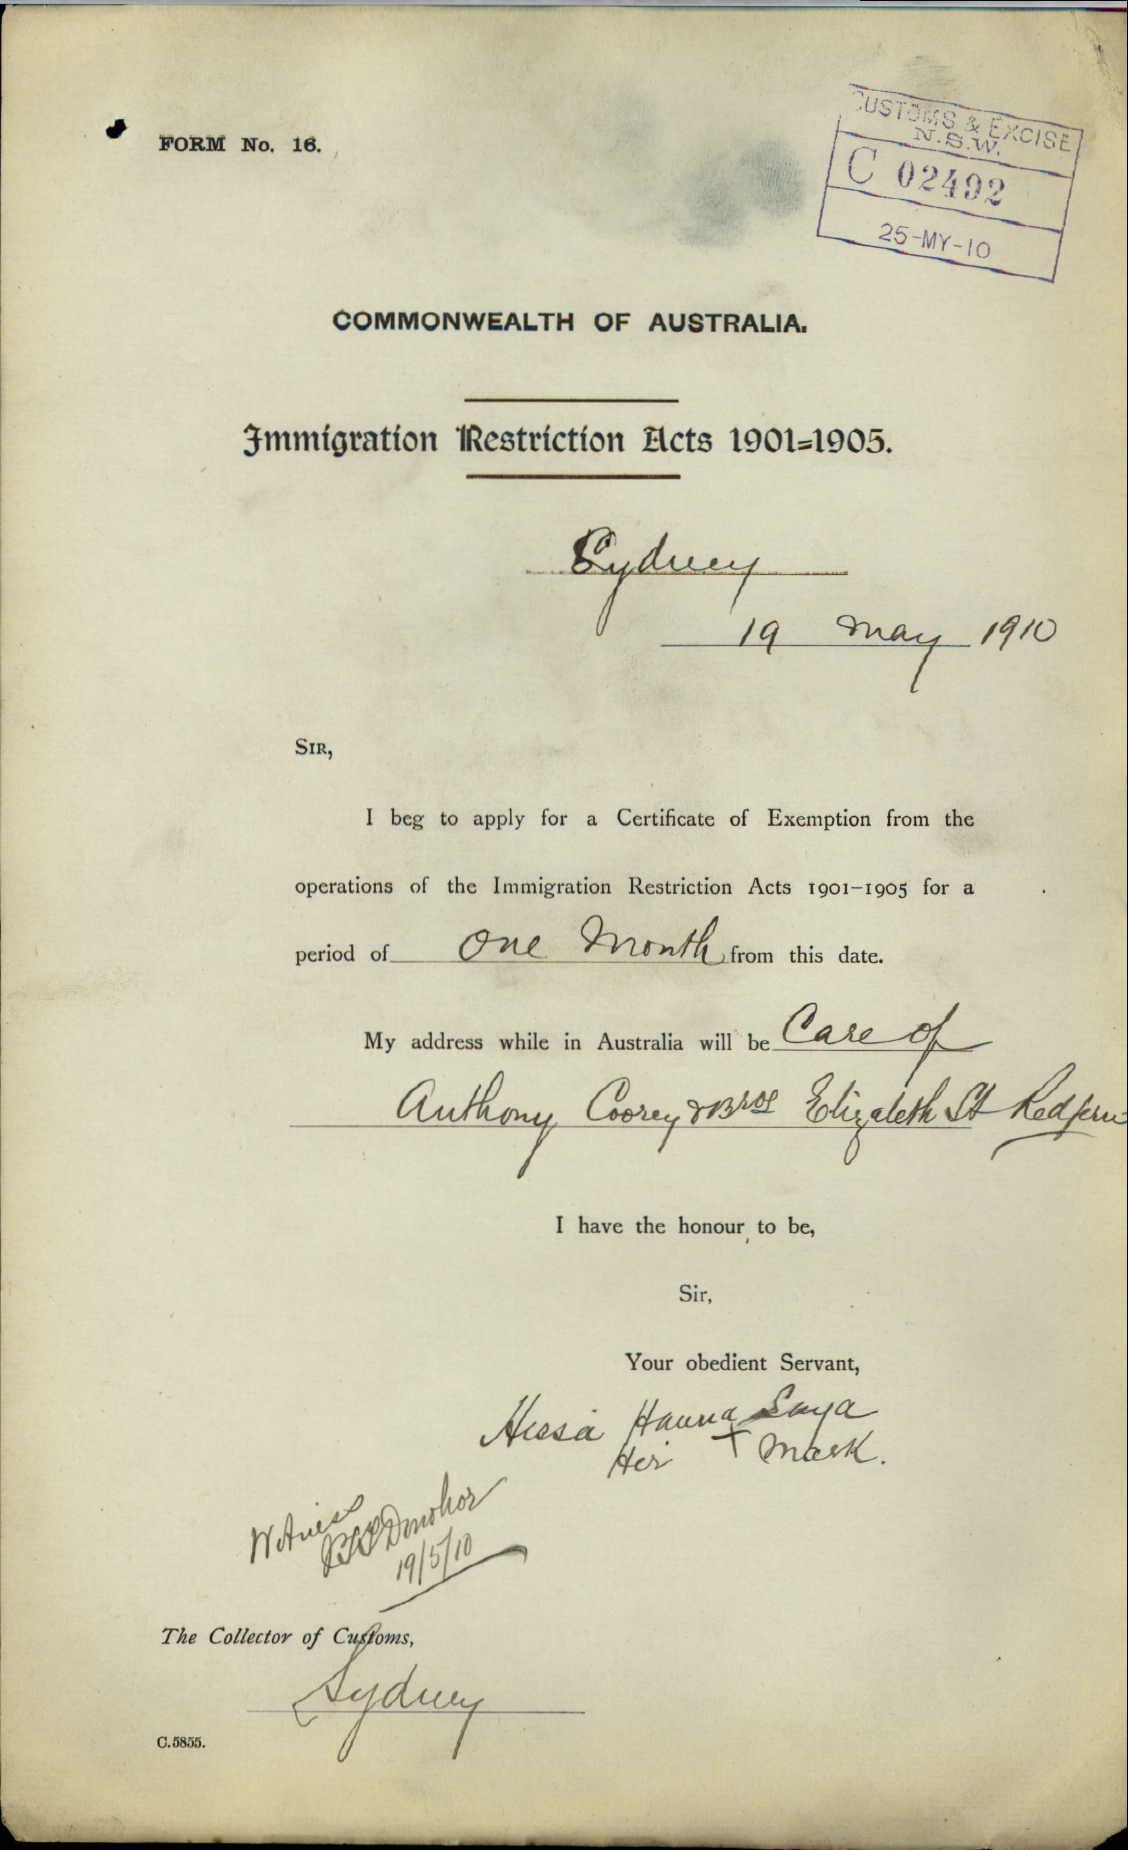 FORM No. 16.
CUSTOMS & EXCISE
N.S.W.
C 02492
25-MY-10
COMMONWEALTH OF AUSTRALIA.
Immigration Restriction Acts 1901=1905.
Sydney
19 May 1910
SIR,
I beg to apply for a Certificate of Exemption from the
operations of the Immigration Restriction Acts 1901–1905 for a
period of One Month from this date.
My address while in Australia will be Care of
Anthony Coorey & Bros Elizabeth St Redfern
I have the honour to be,
Sir,
Your obedient Servant,
Hanna
Her X Mark.
Witness
Donohoe
19/5/10
The Collector of Customs,
Sydney
C.5855.